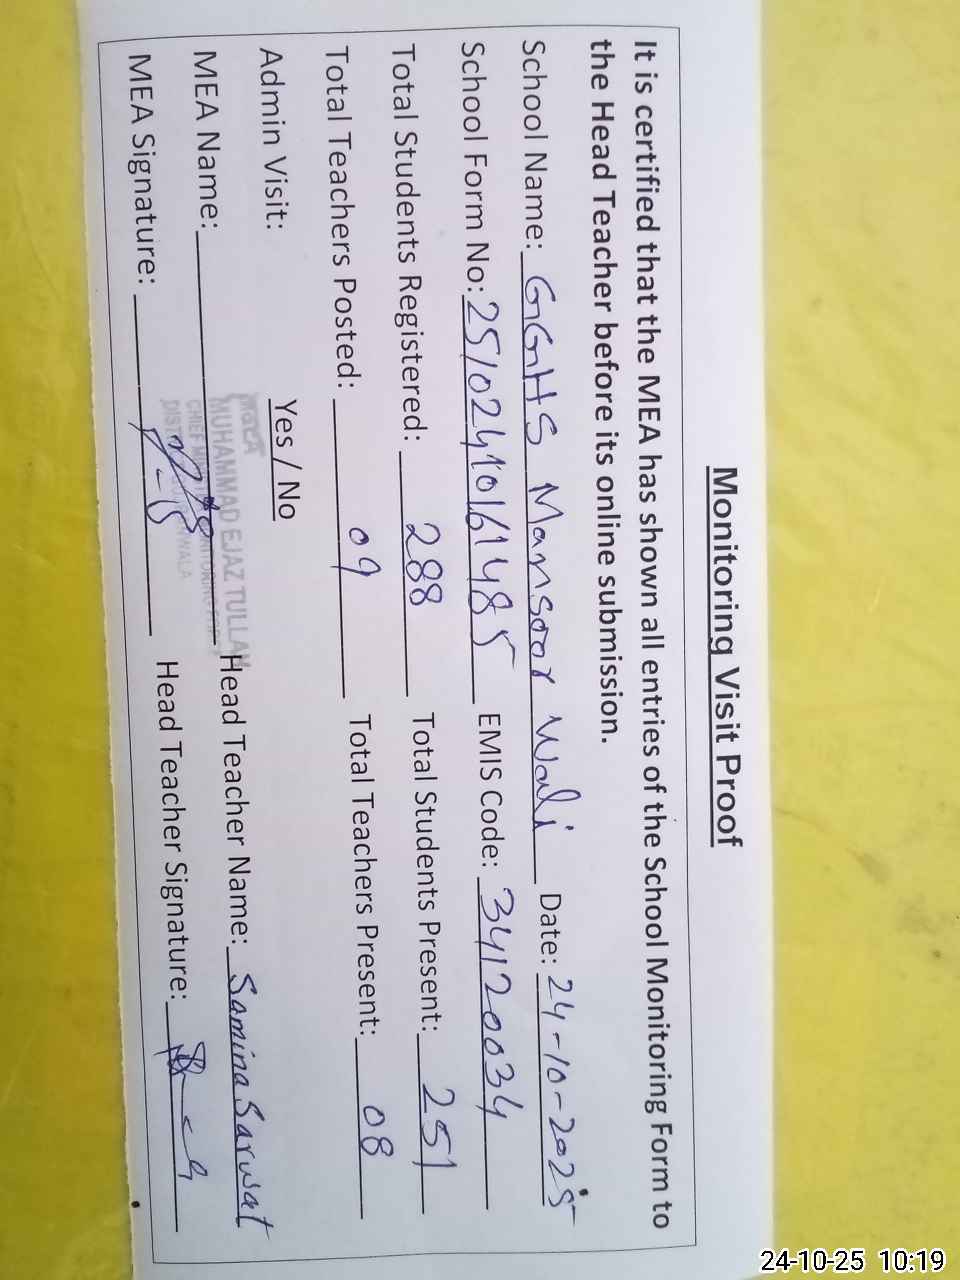 Monitoring Visit Proof
It is certified that the MEA has shown all entries of the School Monitoring Form to
the Head Teacher before its online submission.
School Name: GGHS Mansoor Wali Date: 24-10-2025
School Form No: 2510241016148 5 EMIS Code: 34120034
Total Students Registered: 288 Total Students Present: 251
Total Teachers Posted: 09 Total Teachers Present: 08
Admin Visit: Yes / No
MUHAMMAD EJAZ TULLAH
MEA Name: Head Teacher Name: Samina Sarwat
MEA Signature: Head Teacher Signature:
24-10-25 10:19